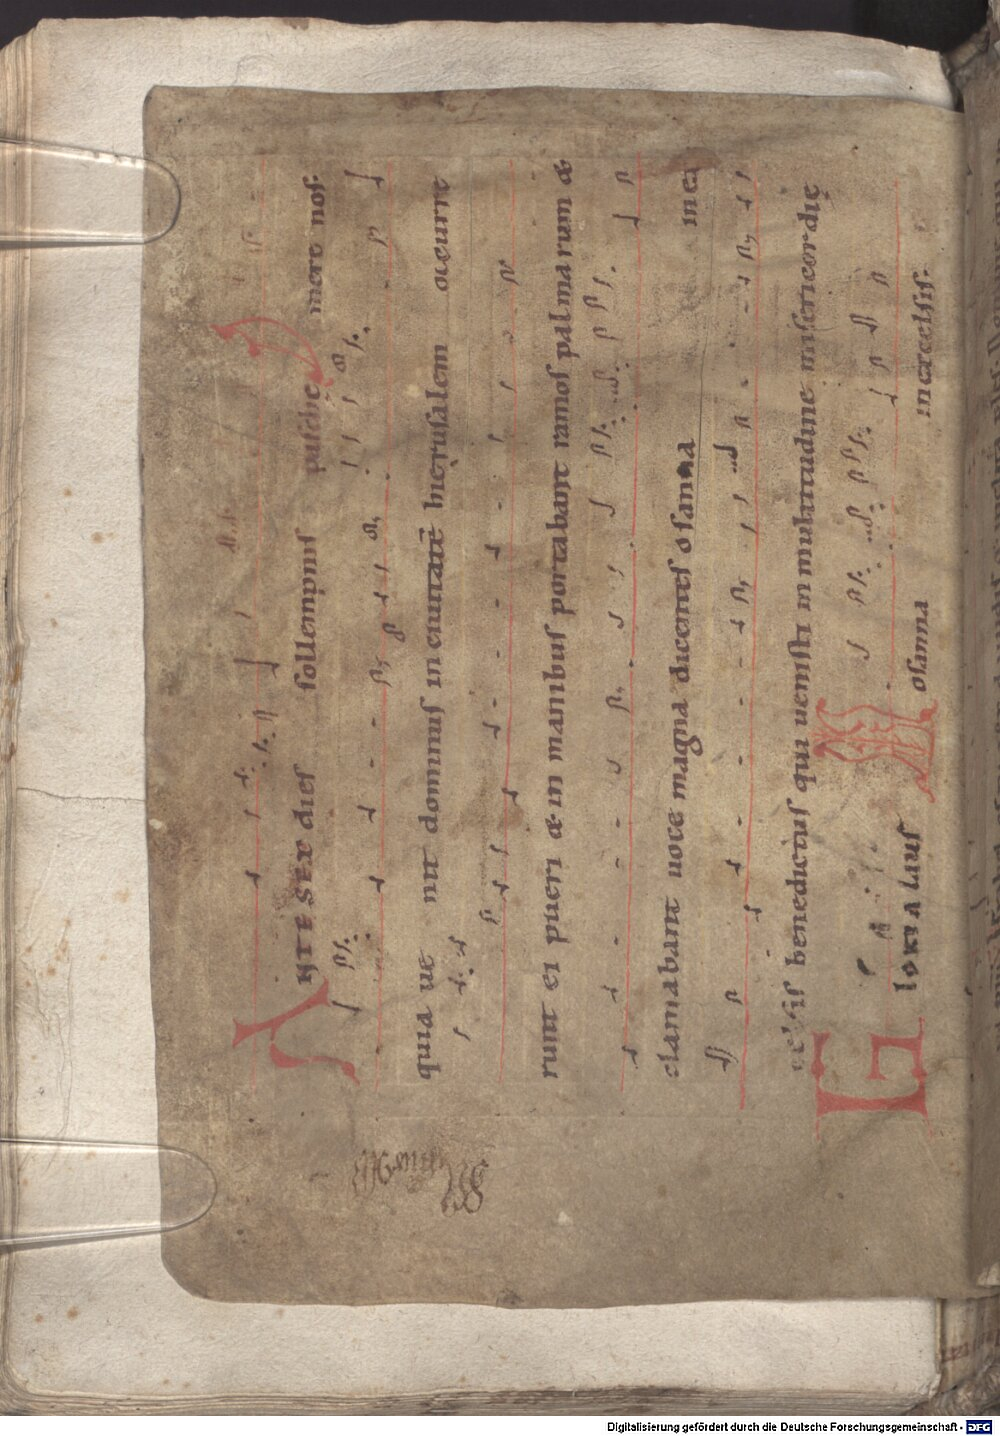 ANTE SEX dies sollempnis pasche
quia ue nit dominus in ciuitatē hierusalem occurre
runt ei pueri & in manibus portabant ramos palmarum &
clamabant uoce magna dicentes osanna in ex
celsis benedictus qui uenisti in multitudine misericordię
GloRIA laus osanna in excelsis.
Digitalisierung gefördert durch die Deutsche Forschungsgemeinschaft - DFG